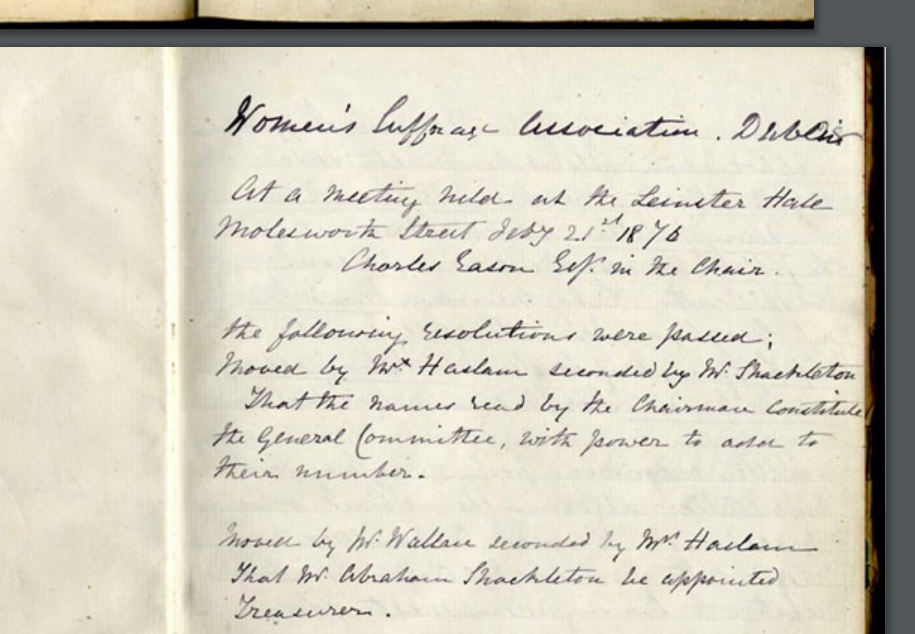 Women's Suffrage Association. Dublin
At a meeting held at the Leinster Hall
Molesworth Street Feby 21st 1876
Charles Eason Esqr. in the Chair.
the following resolutions were passed;
Moved by Mrs Haslam seconded by Mr. Shackleton
That the names read by the Chairman Constitute
the General Committee, with power to add to
their number.
Moved by Mr. Wallace seconded by Mrs. Haslam
That Mr. Abraham Shackleton be appointed
Treasurer.